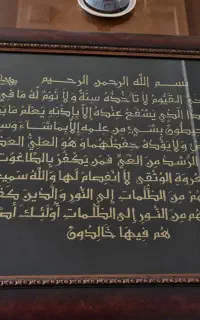 بسم الله الرحمن الرحيم
القيوم لا تأخذه سنة ولا نوم له ما في
ذا الذي يشفع عنده إلا بإذنه يعلم ما
يطون بشيء من علمه إلا بما شاء وس
ولا يؤده حفظهما وهو العلي العظ
الرشد من الغي فمن يكفر بالطاغوت
عروة الوثقى لا انفصام لها والله سميع
هم من الظلمات إلى النور والذين كف
هم من النور إلى الظلمات أولئك أص
هم فيها خالدون